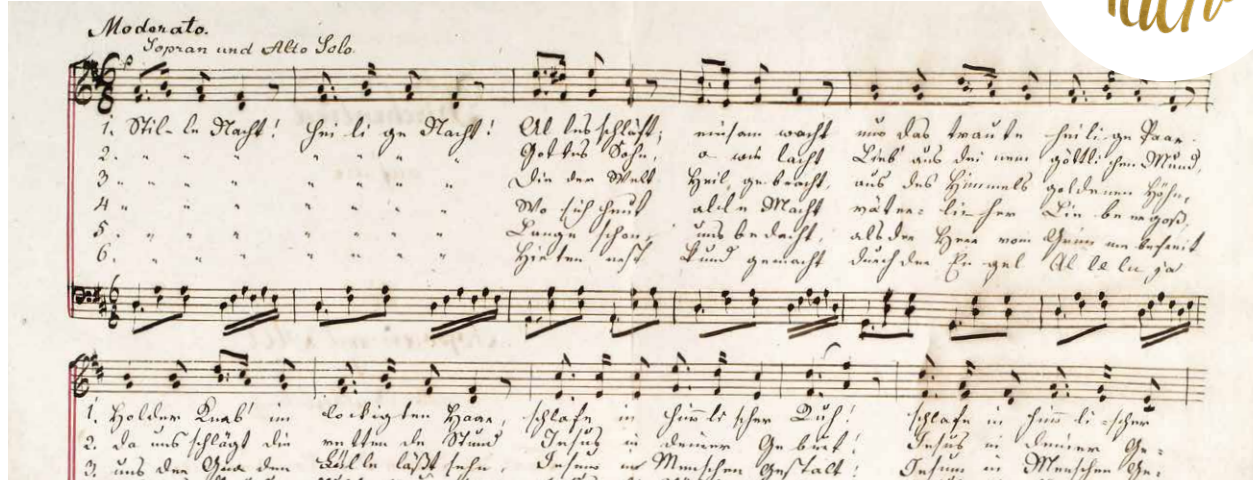 Moderato.
Sopran und Alto Solo.
1. Stil-le Nacht! Hei li ge Nacht! Al les schläft; einsam wacht nur das traute heili-ge Paar.
2. " " " " " " " Gottes Sohn, o wie lacht Lieb' aus dei nem göttli chen Mund,
3 " " " " " " " Die der Welt Heil gebracht, aus des Himmels goldenen Höhn,
4 " " " " " " " Wo sich heut alle Macht väter-li-cher Lie be ergoß,
5. " " " " " " " Lange schon, uns bedacht, als der Herr vom Grimme befreit
6. " " " " " " " Hirten erst kund gemacht durch der En gel Al le lu ja
1. Holder Knab' im lockigten Haar, schlafe in himmli scher Ruh! schlafe in himm li-scher
2. Da uns schlägt die retten de Stund Jesus in deiner Ge burt! Jesus in deiner Ge-
3. uns der Gna den Fülle läßt sehn, Jesum in Menschen Gestalt! Jesum in Menschen Ge-